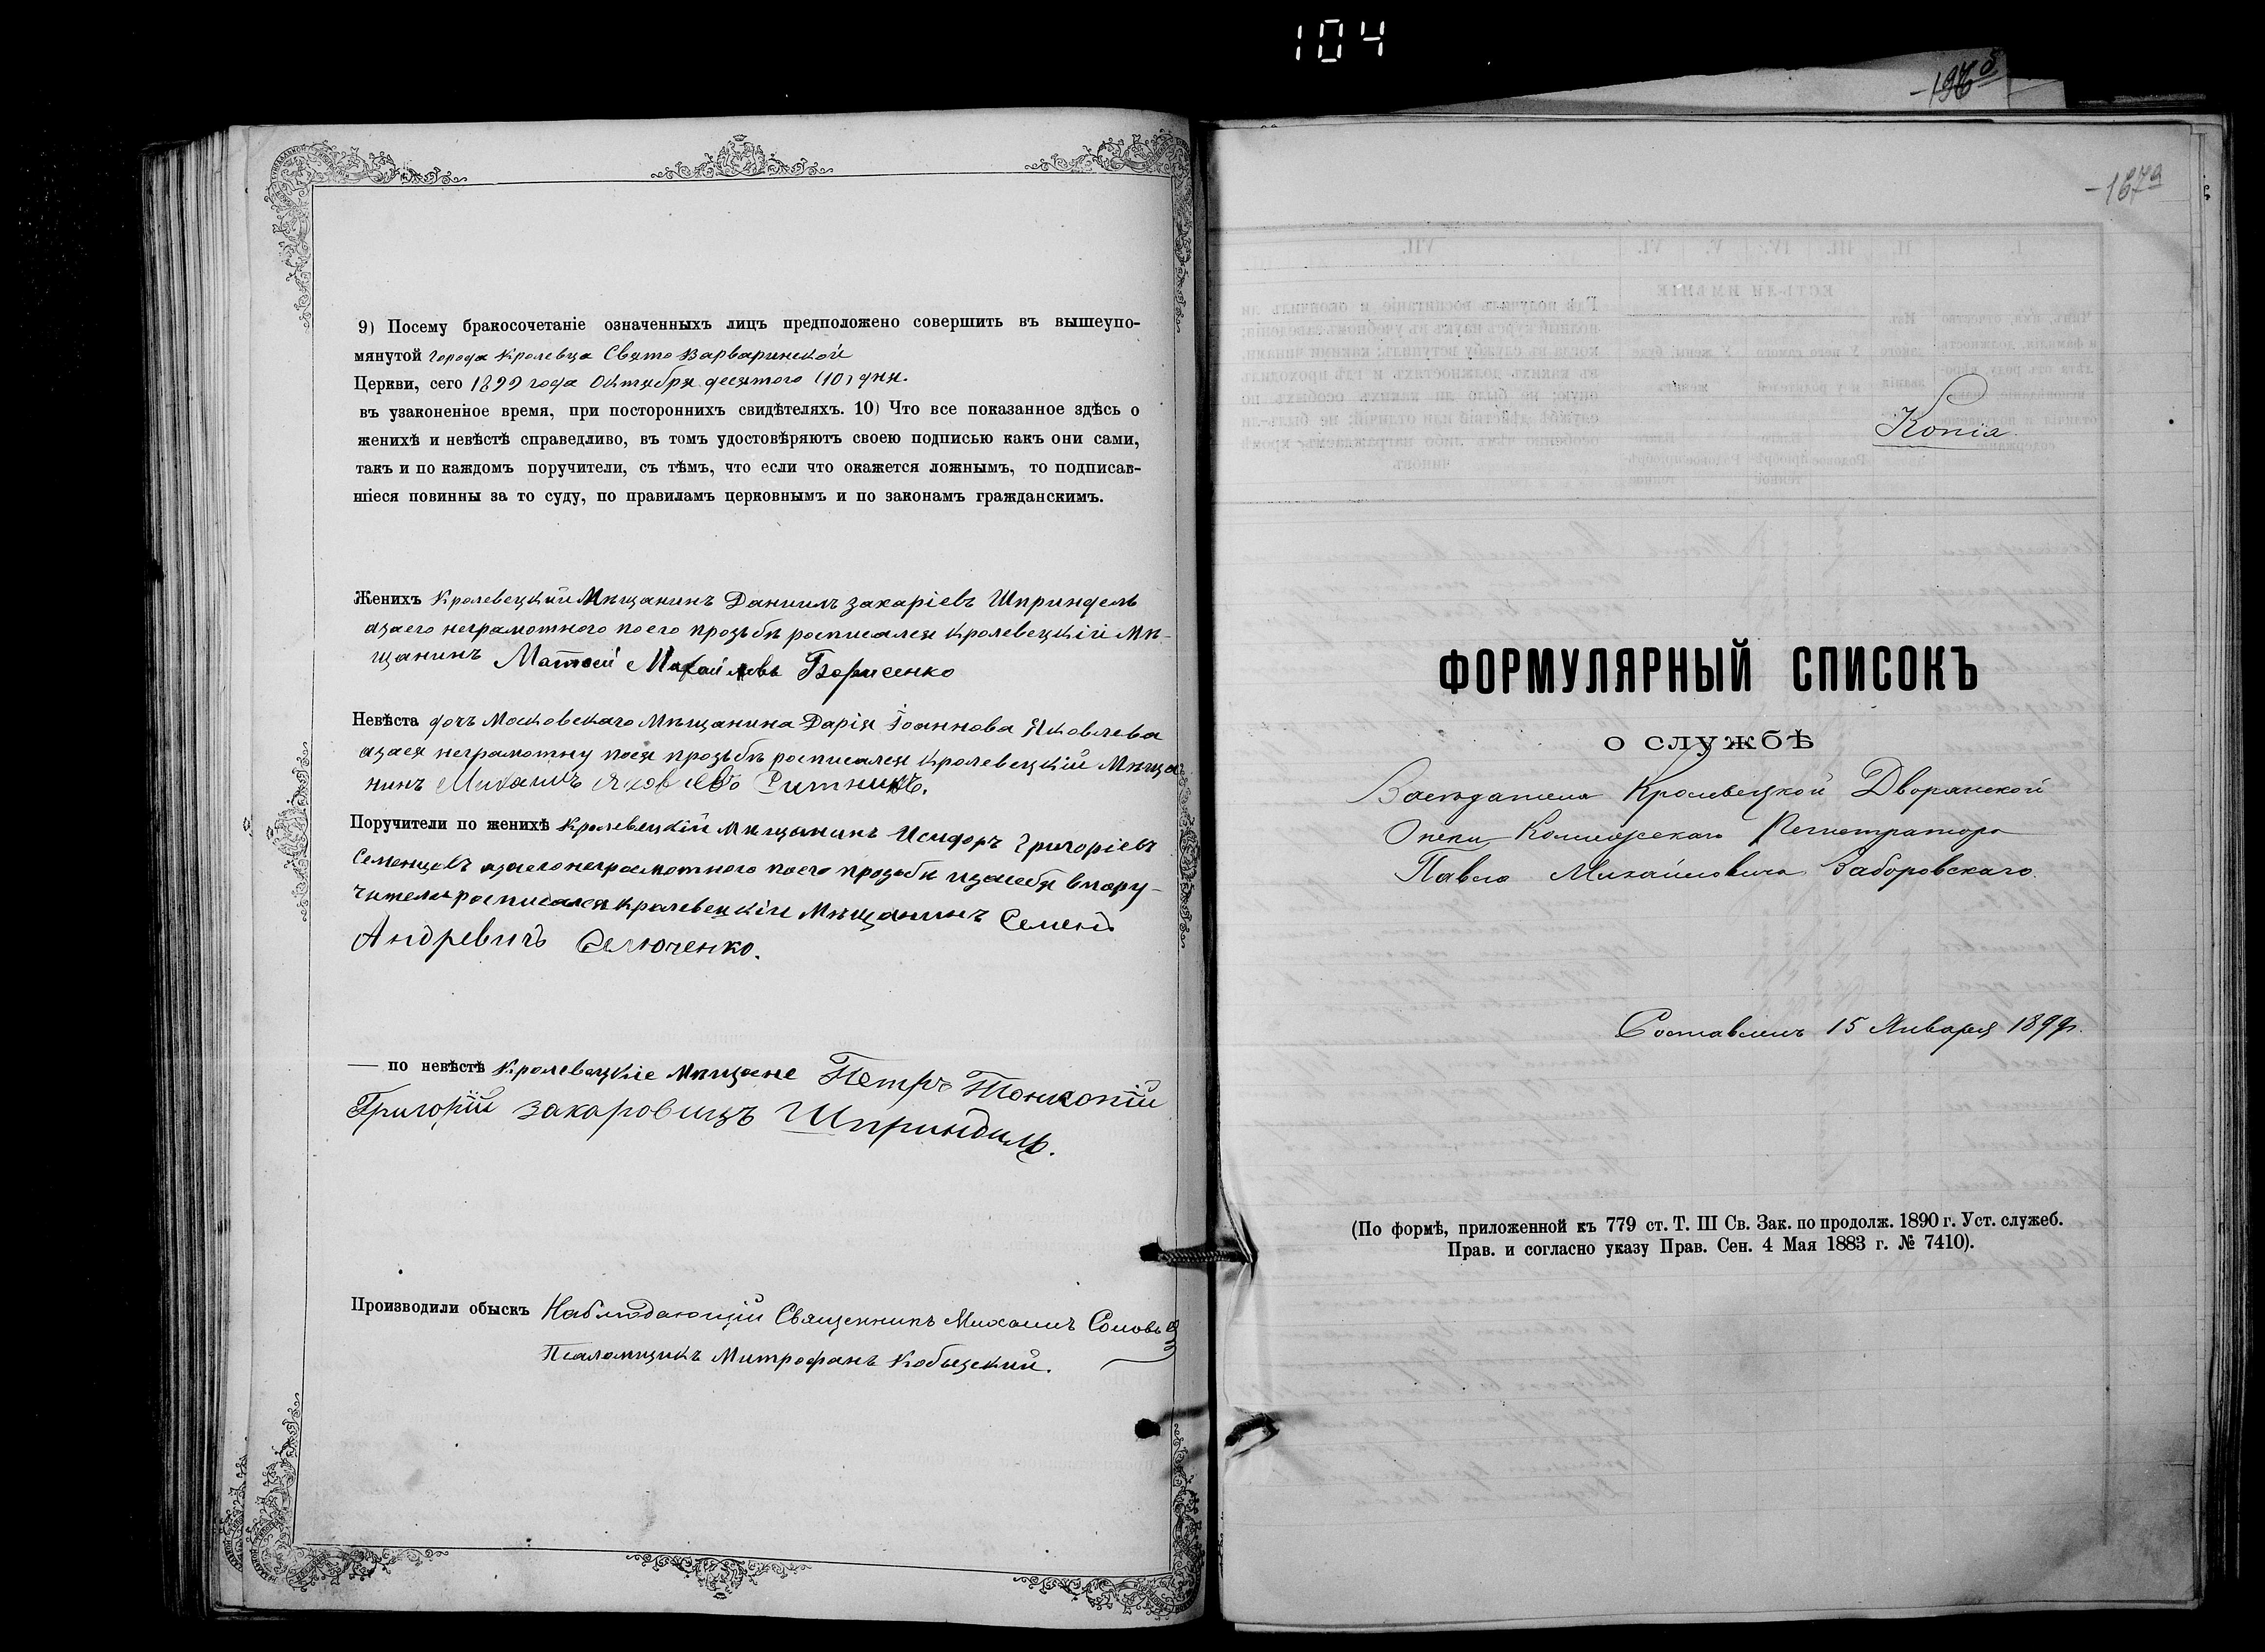 104
9) Посему бракосочетаніе означенныхъ лицъ предположено совершить въ вышеупо-
мянутой города Кролевца Свято Варваринской
Церкви, сего 1899 года Октября десятого (10) дня.
въ узаконенное время, при постороннихъ свидѣтеляхъ. 10) Что все показанное здѣсь о
женихѣ и невѣстѣ справедливо, въ томъ удостовѣряютъ своею подписью какъ они сами,
такъ и по каждомъ поручители, съ тѣмъ, что если что окажется ложнымъ, то подписав-
шіеся повинны за то суду, по правиламъ церковнымъ и по законамъ гражданскимъ.
Женихъ Кролевецкій Мѣщанинъ Даніилъ Захаріевъ Шприндель
азаего неграмотного поего прозьбѣ росписался Кролевецкій Мѣ-
щанинъ Матвей Михайловъ Борисенко
Невѣста дочь Московскаго Мѣщанина Дарія Іоаннова Яковлева
азаея неграмотну поея прозьбѣ росписался Кролевецкій Мѣща
нинъ Михаилъ Яковлевъ
Поручители по женихѣ Кролевецкій Мѣщанинъ Исидоръ Григоріевъ
Семенцовъ азаего неграмотного поего прозьбѣ изасебя впору-
чители росписался Кролевецкій Мѣщанинъ Семенъ
Андревичъ Селюченко.
— по невѣстѣ Кролевецкіе Мѣщане Петръ Тонконій
Григорій Захаровичъ Шприндиль.
Производили обыскъ Наблюдающій Священникъ Михаилъ
Псаломщикъ Митрофанъ Кобыцскій.
-167а
Копія.
ФОРМУЛЯРНЫЙ СПИСОКЪ
О СЛУЖБѢ
Засѣдателя Кролевецкой Дворянской
Опеки Коллежскаго Регистратора
Павла Михайловича Заборовскаго.
Составленъ 15 Января 1899 г.
(По формѣ, приложенной къ 779 ст. Т. III Св. Зак. по продолж. 1890 г. Уст. служеб.
Прав. и согласно указу Прав. Сен. 4 Мая 1883 г. № 7410).